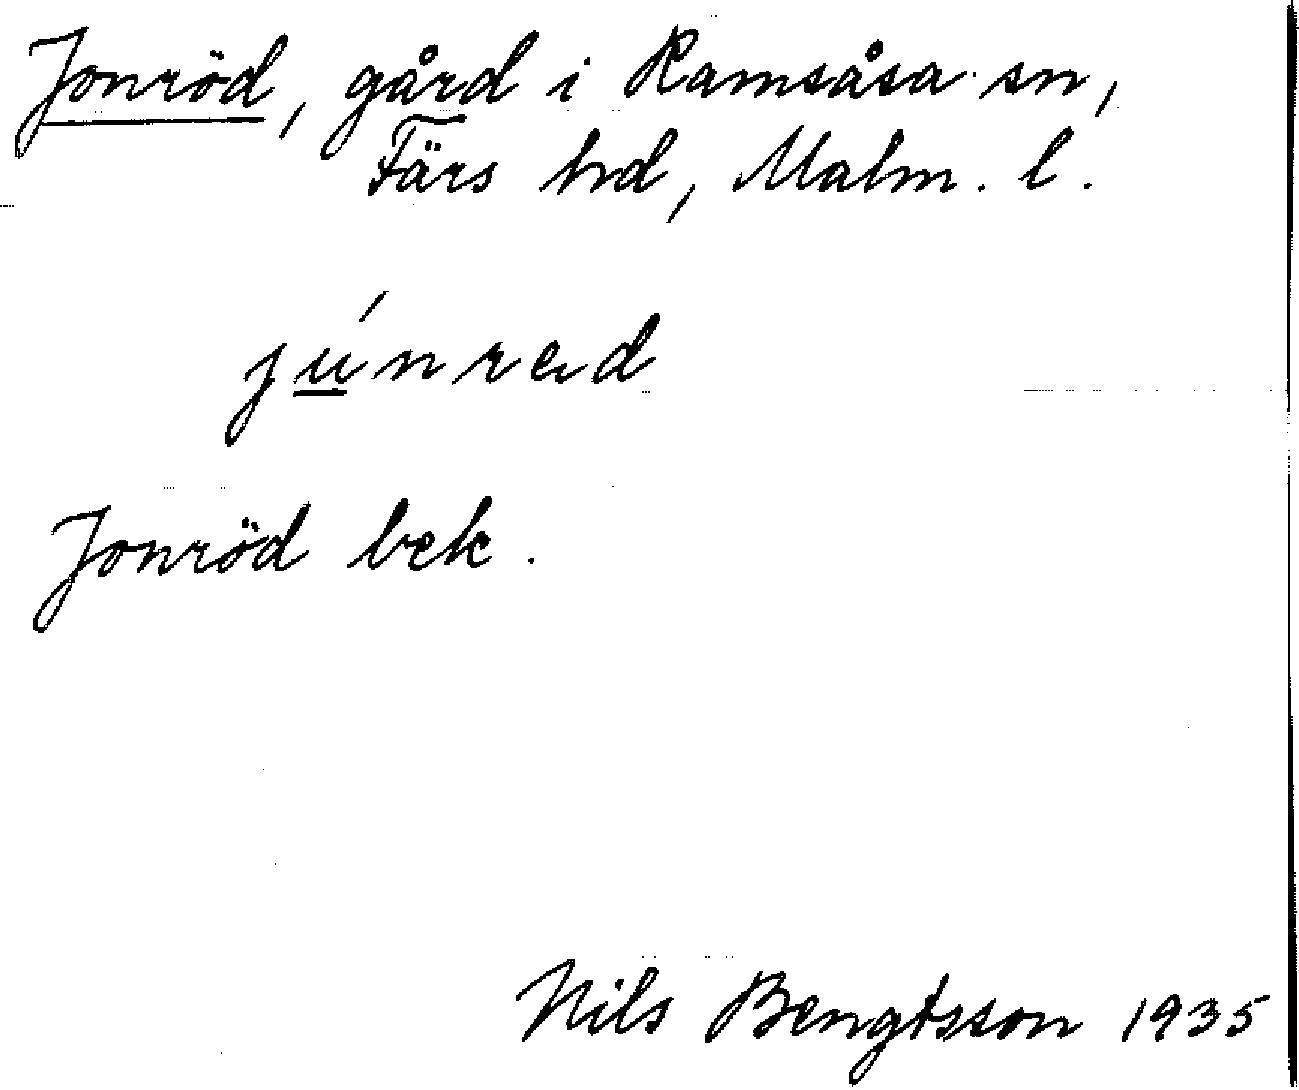 Jonröd, gård i Ramsåsa sn,
Färs hd, Malm. l.
júnred
Jonröd bek.
Nils Bengtsson 1935